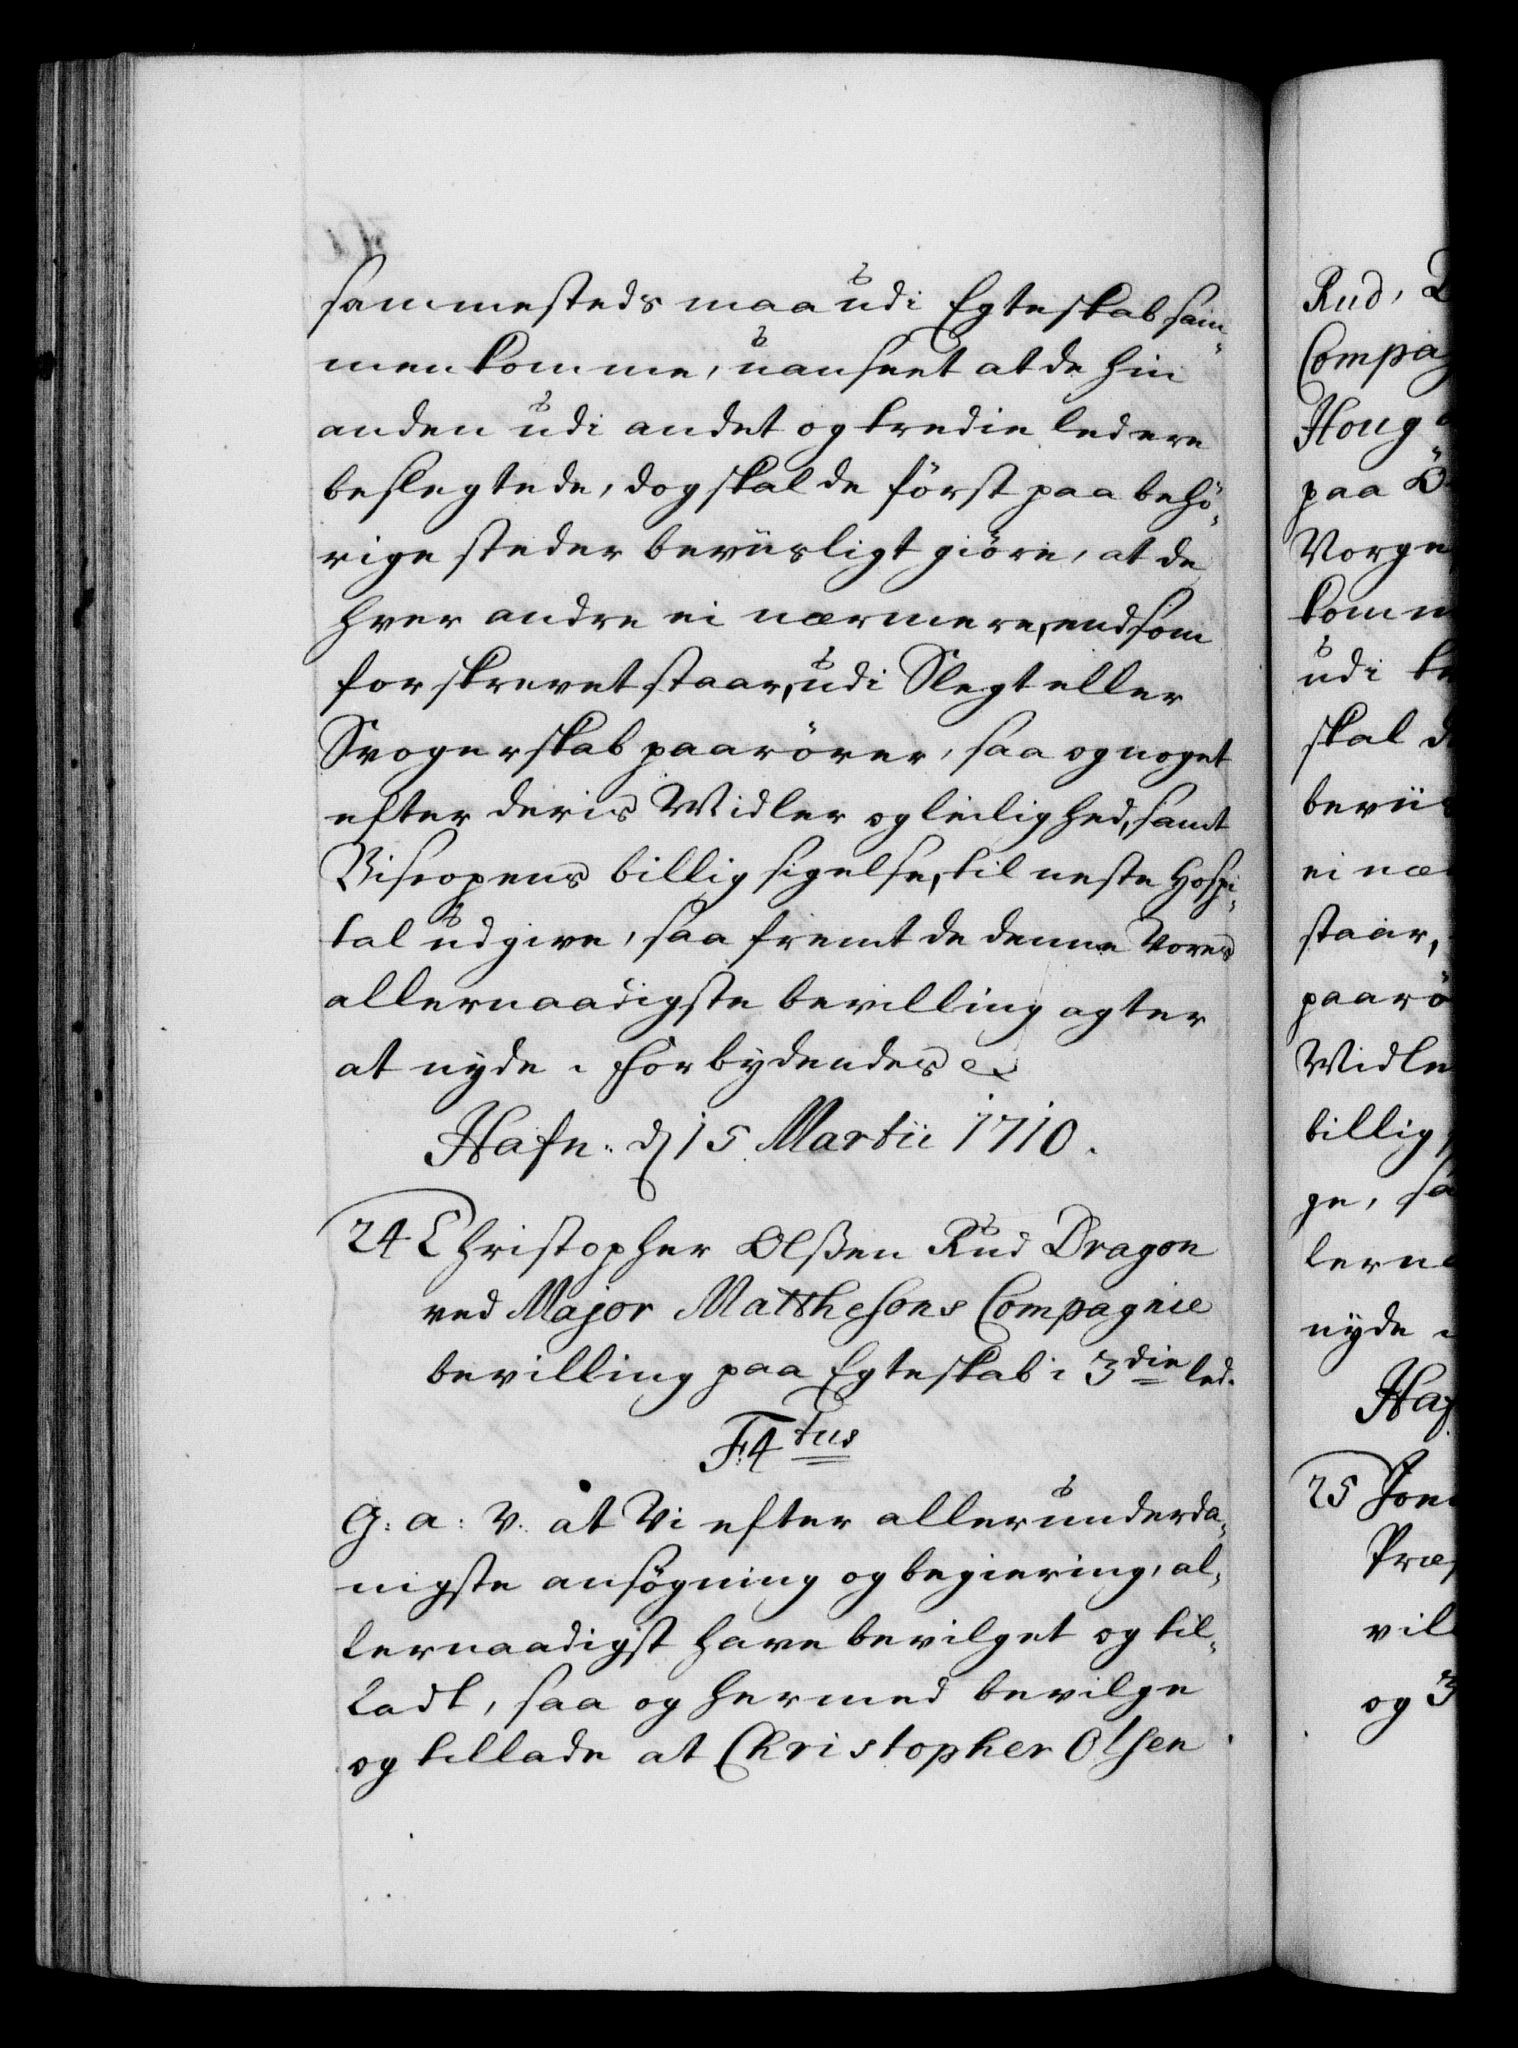 sammesteds maa udi Egteskab sam-
menkomme, uanseet at de hin
anden udi andet og tredie led ere
beslegtede, dog skal de först paa behö-
rige steder beviisligt giöre, at de
hver andre ei nærmere, end som
forskrevet staar, udi Slegt eller
Svogerskab paarörer, saa og noget
efter deris Midler og leilighed, samt
Biscopens billigsigelse, til neste Hospi-
tal udgive, saa fremt de denne Vores
allernaadigste bevilling agter
at nyde. Forbydendes &
Hafn: d 15 Martii 1710.
24 Christopher Olßen Rud Dragon
ved Major Matthesons Compagnie
bevilling paa Egteskab i 3die led.
F:4tus
G: a: V: at Vi efter allerunderda-
nigste ansögning og begiering, al-
lernaadigst have bevilget og til-
ladt, saa og hermed bevilge
og tillade at Christopher Olsen
Rud,
Compag
Houg
paa
Vorge
komm
udi
skal
beviis
ei næ
staar,
paarö
Midle
billig
ge, sa
lerna
nyde
Haf
25 Jon
Præ
vil
og 3